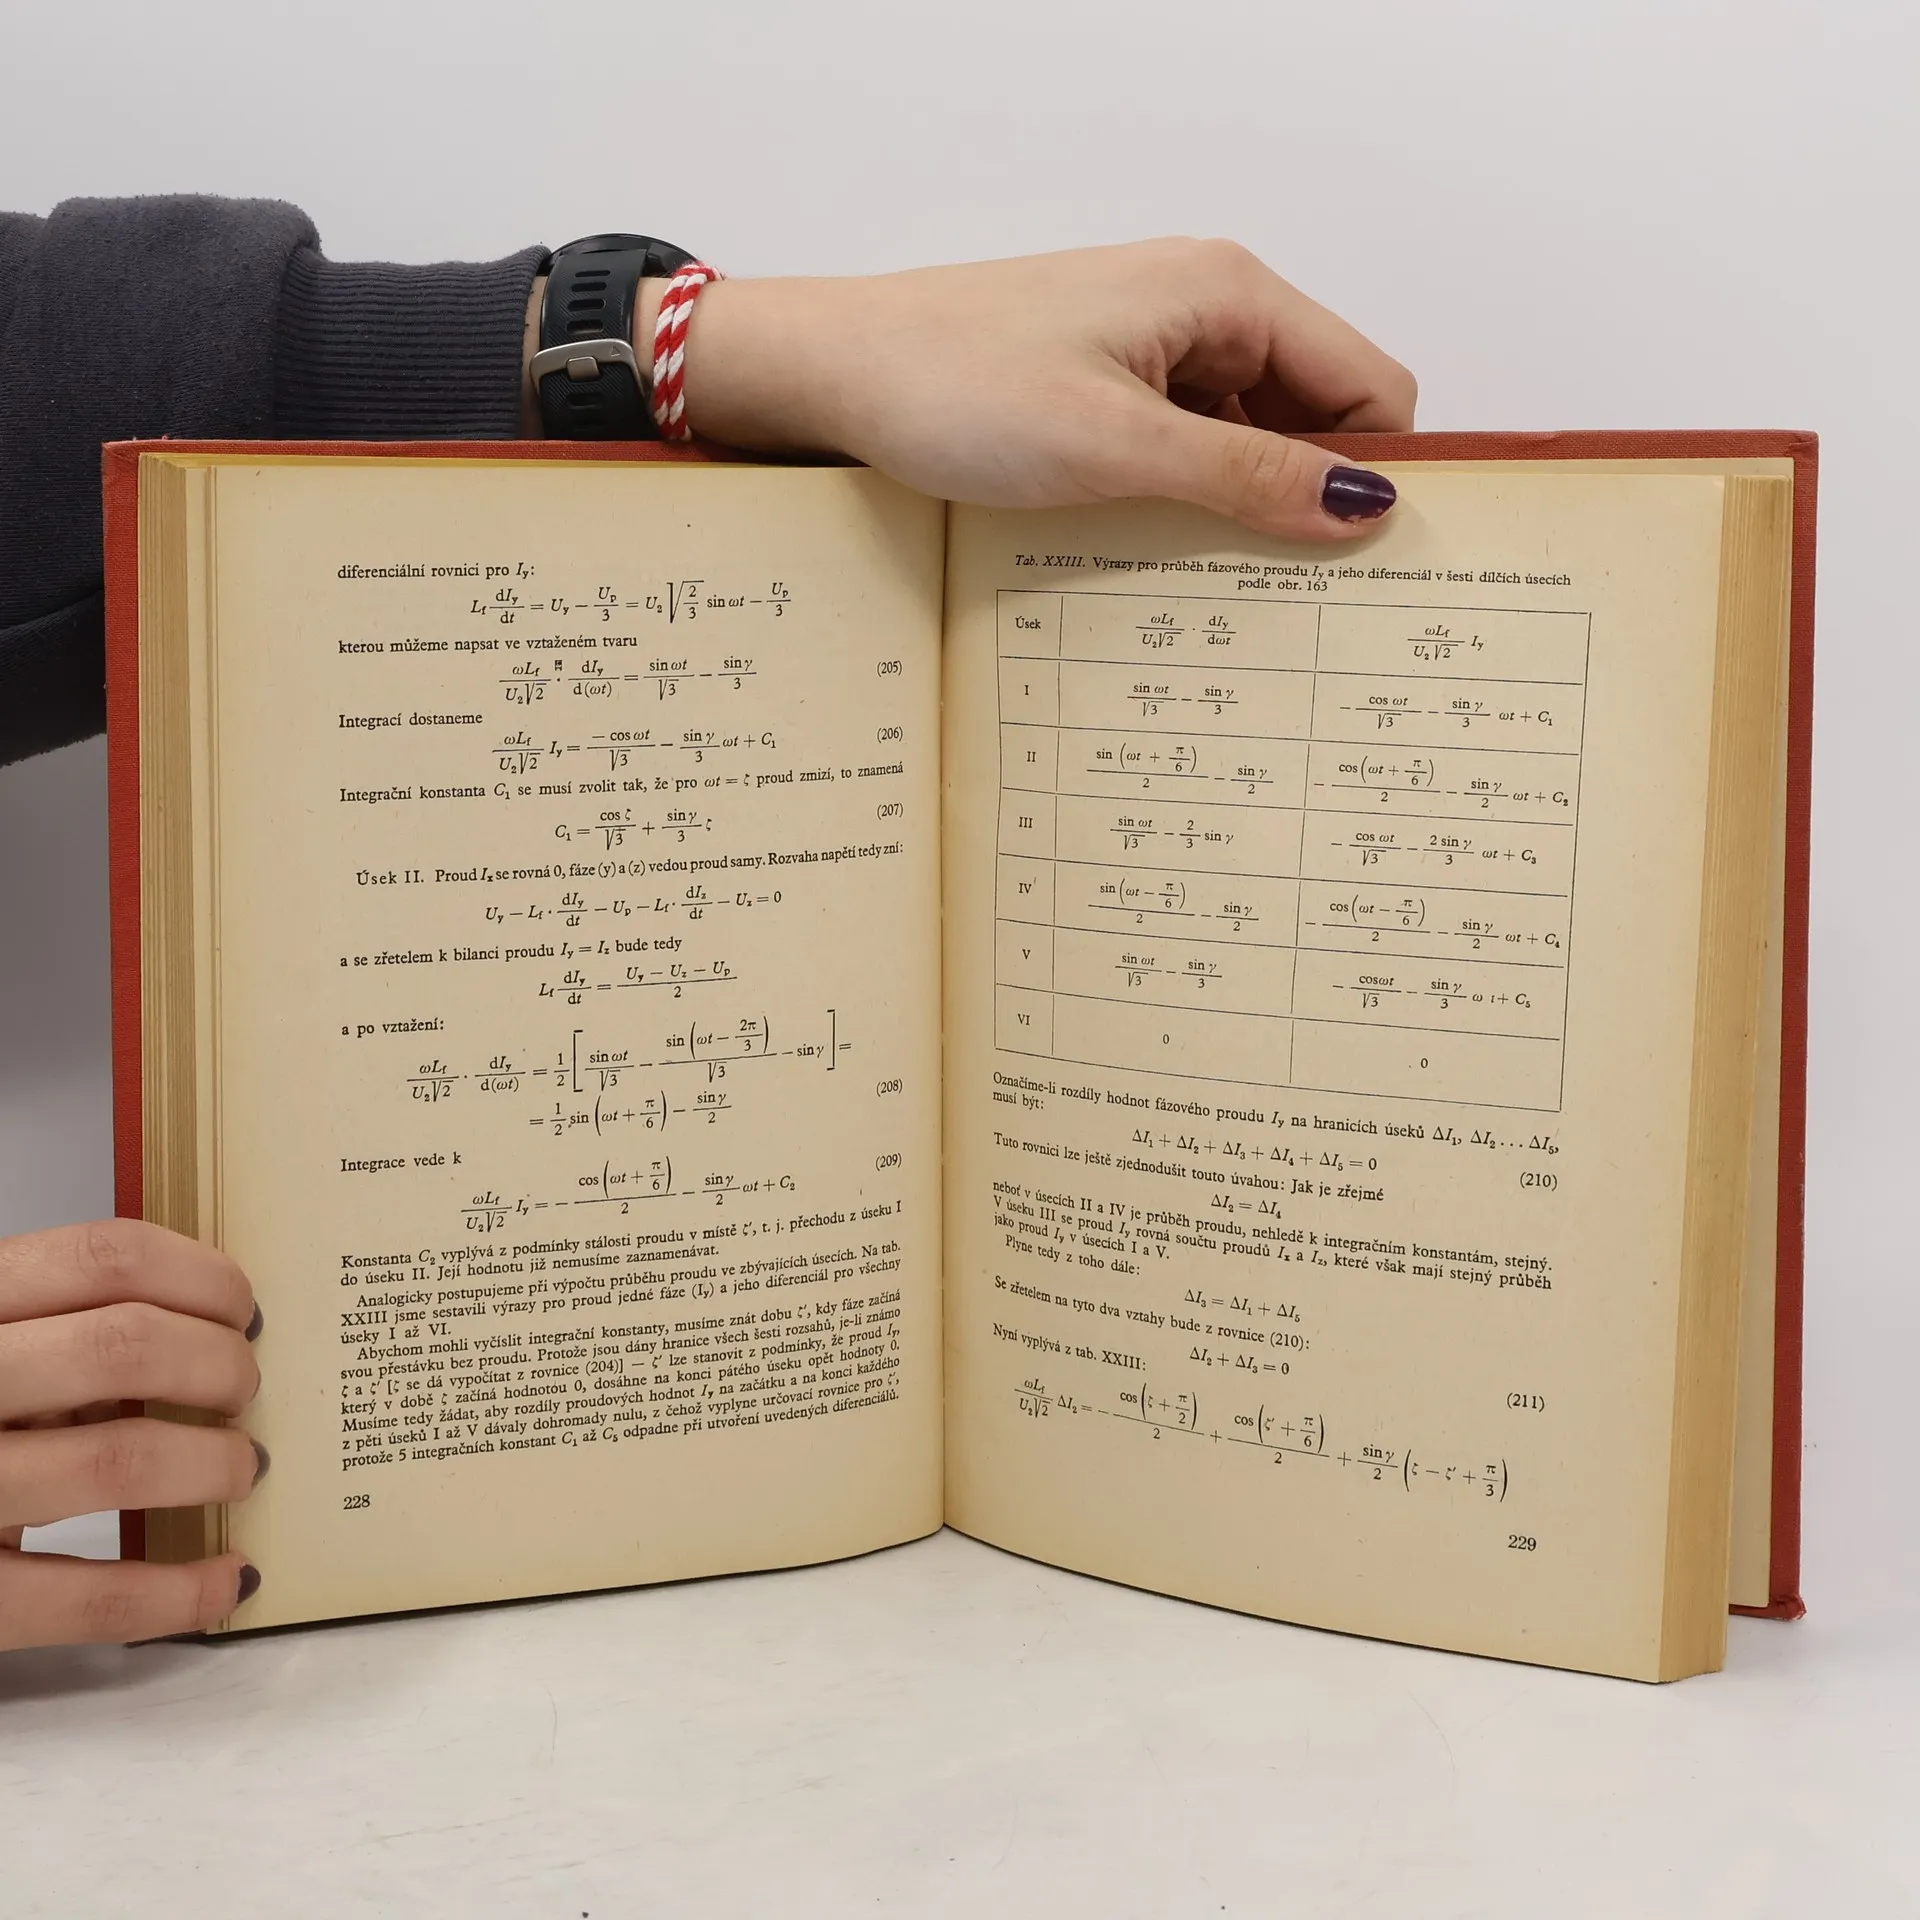 diferenciální rovnici pro I_y:
L_f dI_y/dt = U_y − U_p/3 = U_2 √(2/3) sin ωt − U_p/3
kterou můžeme napsat ve vztaženém tvaru
ωL_f/(U_2√2) · dI_y/d(ωt) = sin ωt/√3 − sin γ/3 (205)
Integrací dostaneme
ωL_f/(U_2√2) I_y = − cos ωt/√3 − sin γ/3 ωt + C_1 (206)
Integrační konstanta C_1 se musí zvolit tak, že pro ωt = ζ proud zmizí, to znamená
C_1 = cos ζ/√3 + sin γ/3 ζ (207)
Úsek II. Proud I_x se rovná 0, fáze (y) a (z) vedou proud samy. Rozvaha napětí tedy zní:
U_y − L_f · dI_y/dt − U_p − L_f · dI_z/dt − U_z = 0
a se zřetelem k bilanci proudu I_y = I_z bude tedy
L_f dI_y/dt = (U_y − U_z − U_p)/2
a po vztažení:
ωL_f/(U_2√2) · dI_y/d(ωt) = 1/2 [sin ωt/√3 − sin (ωt − 2π/3)/√3 − sin γ] =
= 1/2 sin (ωt + π/6) − sin γ/2 (208)
Integrace vede k
ωL_f/(U_2√2) I_y = − cos (ωt + π/6)/2 − sin γ/2 ωt + C_2 (209)
Konstanta C_2 vyplývá z podmínky stálosti proudu v místě ζ′, t. j. přechodu z úseku I
do úseku II. Její hodnotu již nemusíme zaznamenávat.
Analogicky postupujeme při výpočtu průběhu proudu ve zbývajících úsecích. Na tab.
XXIII jsme sestavili výrazy pro proud jedné fáze (I_y) a jeho diferenciál pro všechny
úseky I až VI.
Abychom mohli vyčíslit integrační konstanty, musíme znát dobu ζ′, kdy fáze začíná
svou přestávku bez proudu. Protože jsou dány hranice všech šesti rozsahů, je-li známo
ζ a ζ′ [ζ se dá vypočítat z rovnice (204)] — ζ′ lze stanovit z podmínky, že proud I_y,
který v době ζ začíná hodnotou 0, dosáhne na konci pátého úseku opět hodnoty 0.
Musíme tedy žádat, aby rozdíly proudových hodnot I_y na začátku a na konci každého
z pěti úseků I až V dávaly dohromady nulu, z čehož vyplyne určovací rovnice pro ζ′,
protože 5 integračních konstant C_1 až C_5 odpadne při utvoření uvedených diferenciálů.
228
Tab. XXIII. Výrazy pro průběh fázového proudu I_y a jeho diferenciál v šesti dílčích úsecích
podle obr. 163
Úsek ωL_f/(U_2√2) · dI_y/dωt ωL_f/(U_2√2) I_y
I sin ωt/√3 − sin γ/3 − cos ωt/√3 − sin γ/3 ωt + C_1
II sin (ωt + π/6)/2 − sin γ/2 − cos (ωt + π/6)/2 − sin γ/2 ωt + C_2
III sin ωt/√3 − 2/3 sin γ − cos ωt/√3 − 2 sin γ/3 ωt + C_3
IV sin (ωt − π/6)/2 − sin γ/2 − cos (ωt − π/6)/2 − sin γ/2 ωt + C_4
V sin ωt/√3 − sin γ/3 − cosωt/√3 − sin γ/3 ω t + C_5
VI 0 0
Označíme-li rozdíly hodnot fázového proudu I_y na hranicích úseků ΔI_1, ΔI_2 ... ΔI_5,
musí být:
ΔI_1 + ΔI_2 + ΔI_3 + ΔI_4 + ΔI_5 = 0 (210)
Tuto rovnici lze ještě zjednodušit touto úvahou: Jak je zřejmé
ΔI_2 = ΔI_4
neboť v úsecích II a IV je průběh proudu, nehledě k integračním konstantám, stejný.
V úseku III se proud I_y rovná součtu proudů I_x a I_z, které však mají stejný průběh
jako proud I_y v úsecích I a V.
Plyne tedy z toho dále:
ΔI_3 = ΔI_1 + ΔI_5
Se zřetelem na tyto dva vztahy bude z rovnice (210):
ΔI_2 + ΔI_3 = 0 (211)
Nyní vyplývá z tab. XXIII:
ωL_f/(U_2√2) ΔI_2 = − cos (ζ + π/2)/2 + cos (ζ′ + π/6)/2 + sin γ/2 (ζ − ζ′ + π/3)
229